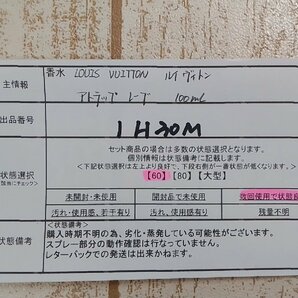 主情報 香水 LOUIS VUITTON ルイ ヴィトン
アトラップ レーブ 100ml
出品番号 1H30M
状態選択
セット商品の場合は多数の状態選択となります。
個別情報は状態備考に記載します。
<下記状態選択は左上より良好、下段右側が一番状態が低くなります>
【60】【80】【大型】
未開封・未使用 開封品で未使用 数回使用で状態良
汚れ・使用感、若干有り 汚れ・使用感 残量不明
状態備考 <状態備考>
購入時期不明の為、劣化・蒸発している可能性がございます。
スプレー部分の動作確認は行なっていません。
レターパックでの発送は出来かねます。